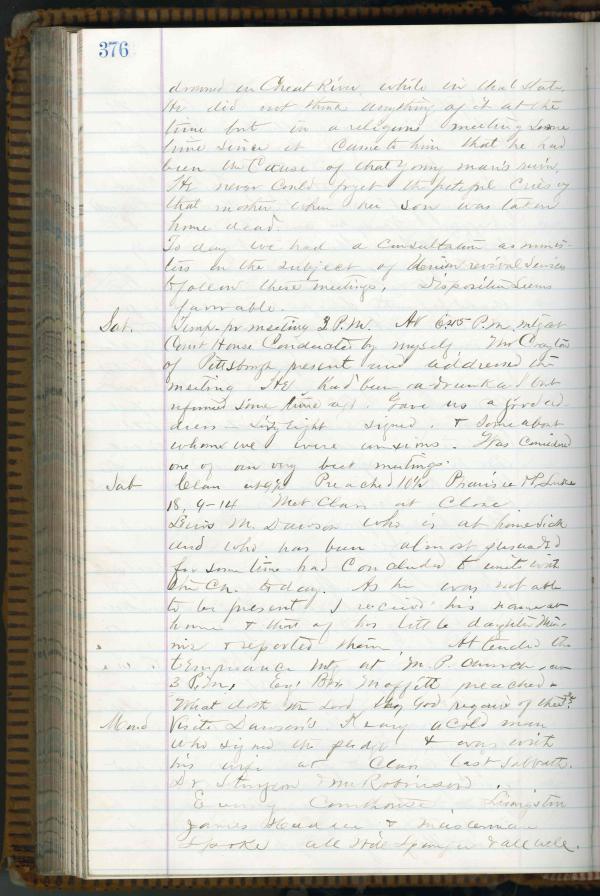 376
drowned in Great River while in that State.
He did not think anything of it at the
time but in a religious meeting some
time since it came to him that he had
been the Cause of that young man's ruin.
He never could forget the pitiful Cries of
that mother when her son was taken
home dead.
To day we had a consultation as minis-
ters on the subject of Union revival Services
to follow these meetings. Disposition seems
favorable.
Sat. Temp. pr meeting 3 P.M. At P.M. mtg at
Court House Conducted by myself. Mr Crayton
of Pittsburgh present and addressed the
meeting. He had been a drunkard but
reformed some time ago. Gave us a good ad-
dress - Sixty eight signed. & Some about
whom we were anxious. Was Considered
one of our very best meetings.
Sab Class at 9½ Preached 10½ P.M. Luke
18, 9-14 Met Class at Close
Lewis M. Dawson who is at home sick
and who has been almost persuaded
for some time had Concluded to unite with
the Ch. to day. As he was not able
to be present I received his name at
home & that of his little daughter Min-
nie & reported them. Attended the
temperance mtg at M.P. Church at
3 P.M. Bro Moffitt preached.
"What doth the Lord thy God require of thee" &c
Mond Visits Dawson's. a Cold man
who signed the pledge & was with
his wife at Class last Sabbath.
Dr. Sturgeon & Mr Robinson.
Evening Courthouse Livingston
James & Masterman
Spoke all well.